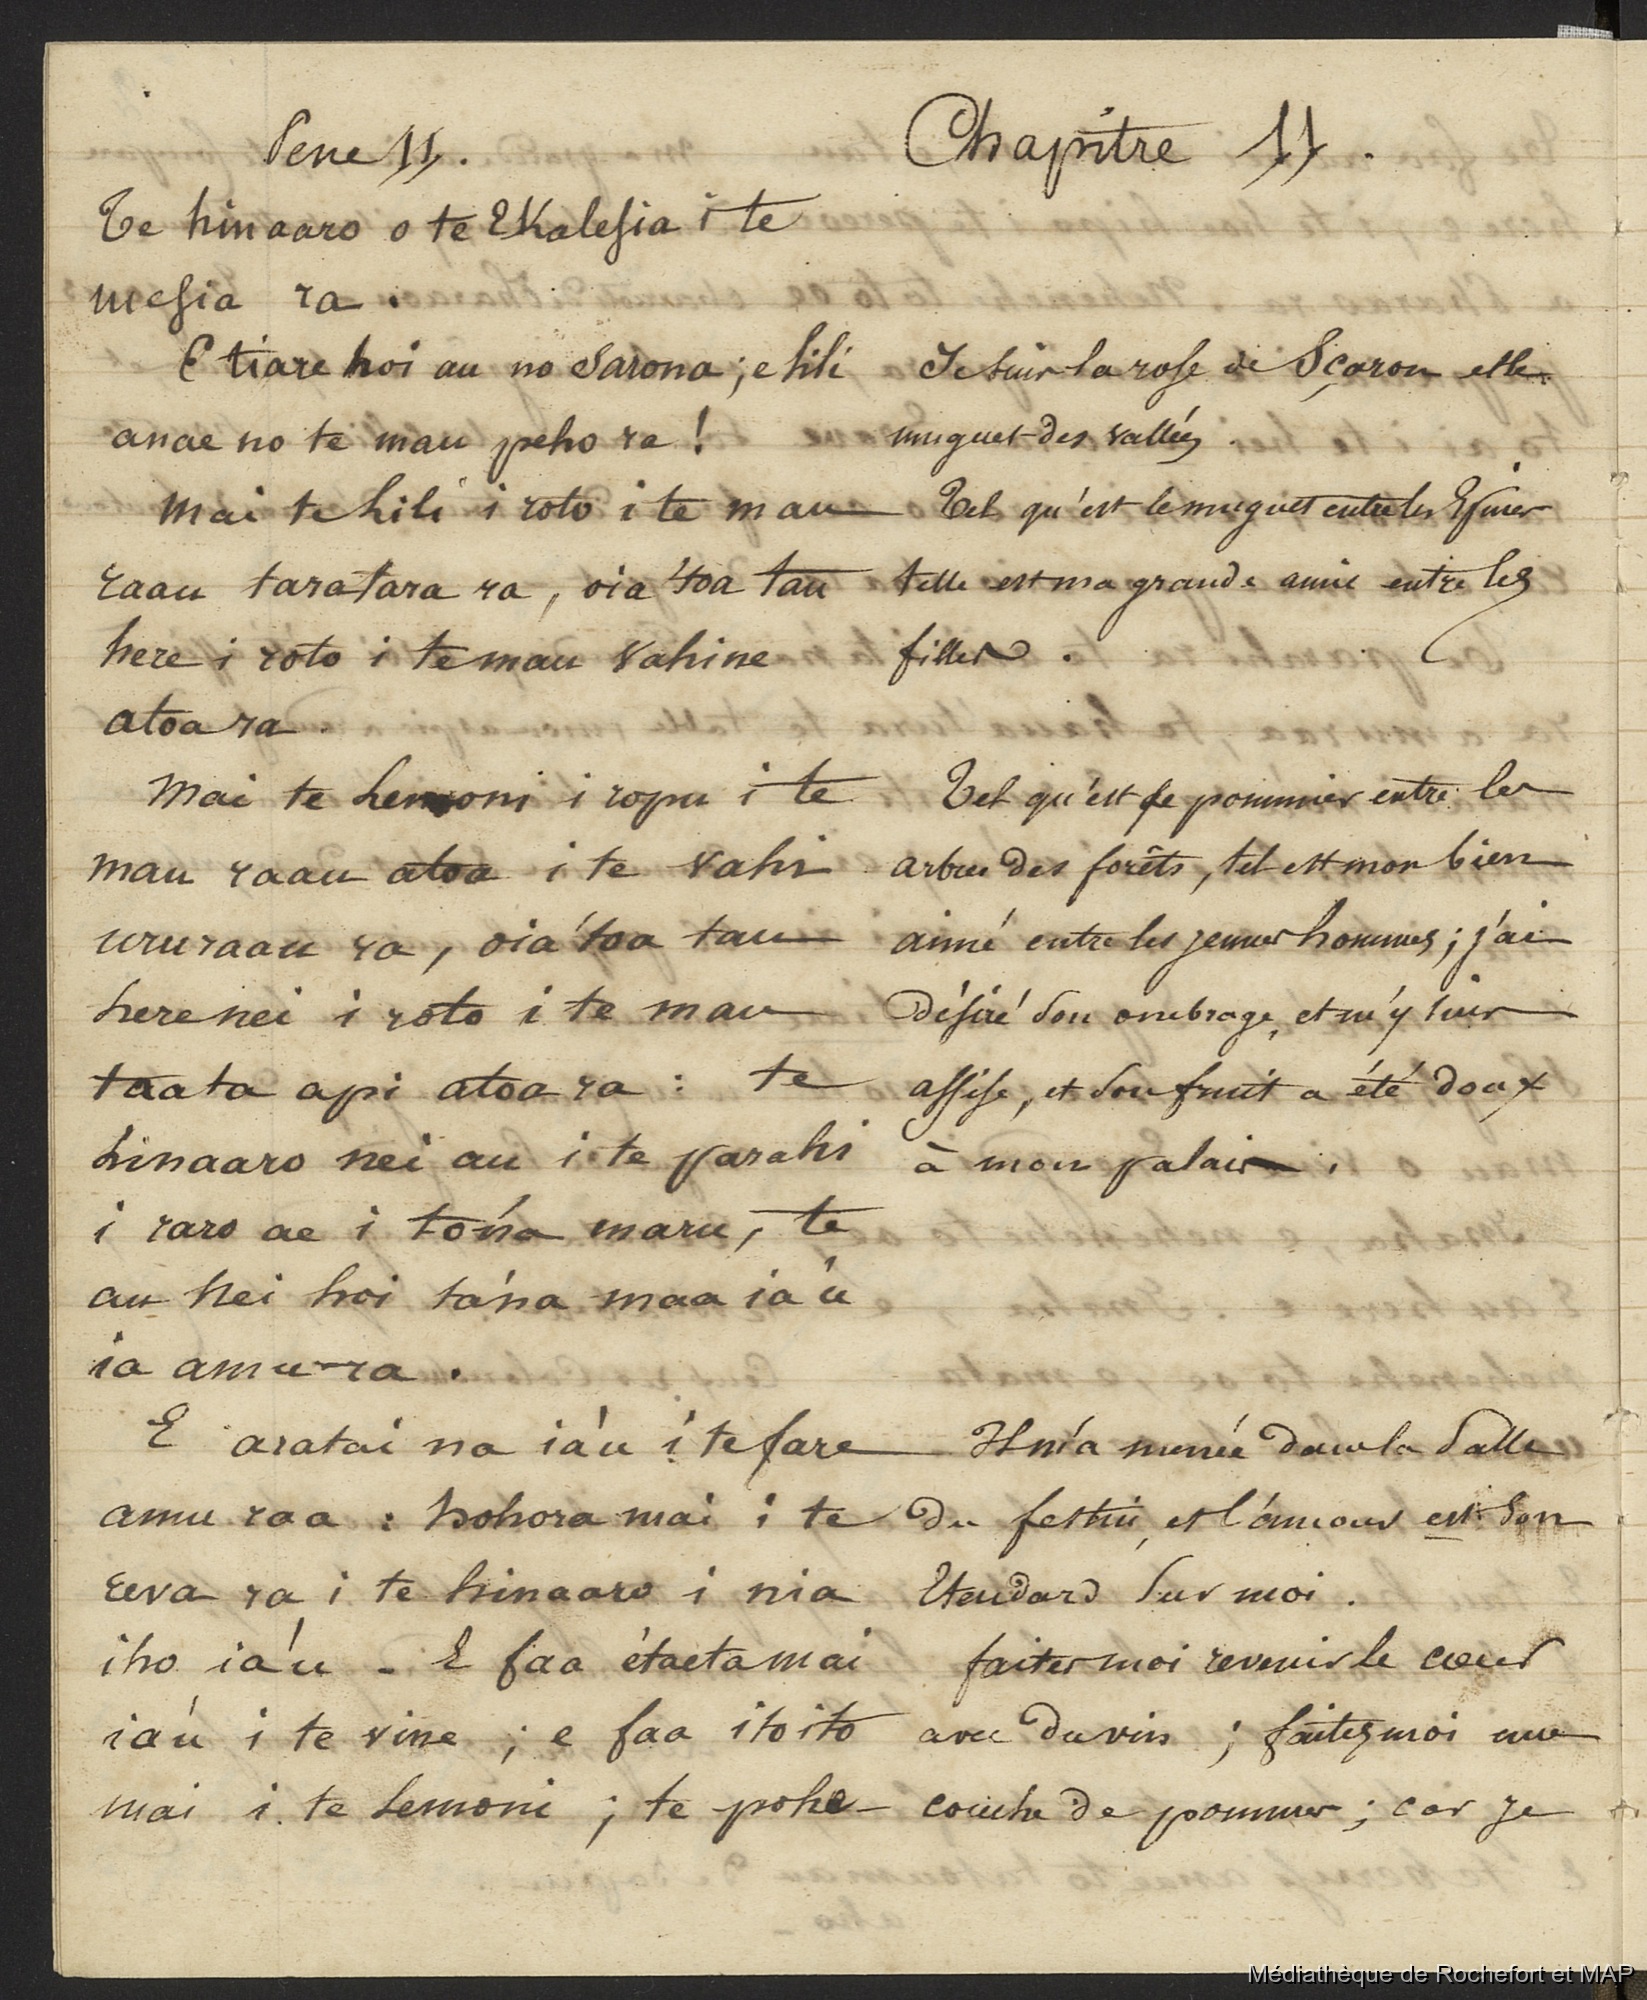 Pene 11.
Te hinaaro o te Ekalesia i te
mesia ra.
E tiare hoi au no Sarona; e lili
anae no te mau peho ra!
Mai te lili i roto i te mau
raau taratara ra, oia'toa tau
here i roto i te mau vahine
atoa ra.
Mai te lemoni i ropu i te
mau raau atoa i te vahi
ururaau ra, oia'toa tau
here nei i roto i te mau
taata api atoa ra : te
hinaaro nei au i te parahi
i raro ae i to'na maru, te
au nei hoi ta'na maa ia'u
ia amu ra.
E aratai na ia'u i te fare
amu raa : hohora mai i te
reva ra i te hinaaro i nia
iho ia'u - E faa étaeta mai
ia'u i te vine ; e faa itoito
mai i te lemoni ; te pohe
Chapitre 11.
Je suis la rose de Sçaron et le
muguet des vallées.
Tel qu'est le muguet entre les Epines
telle est ma grande amie entre les
filles.
Tel qu'est le pommier entre les
arbres des forêts, tel est mon bien
aimé entre les jeunes hommes ; j'ai
désiré son ombrage, et m'y suis
assise, et son fruit a été doux
à mon palais.
Il m'a menée dans la Salle
du festin, et l'amour est son
Etendard sur moi.
faites moi revenir le cœur
avec du vin ; faites moi une
couche de pommes ; car je
Médiathèque de Rochefort et MAP